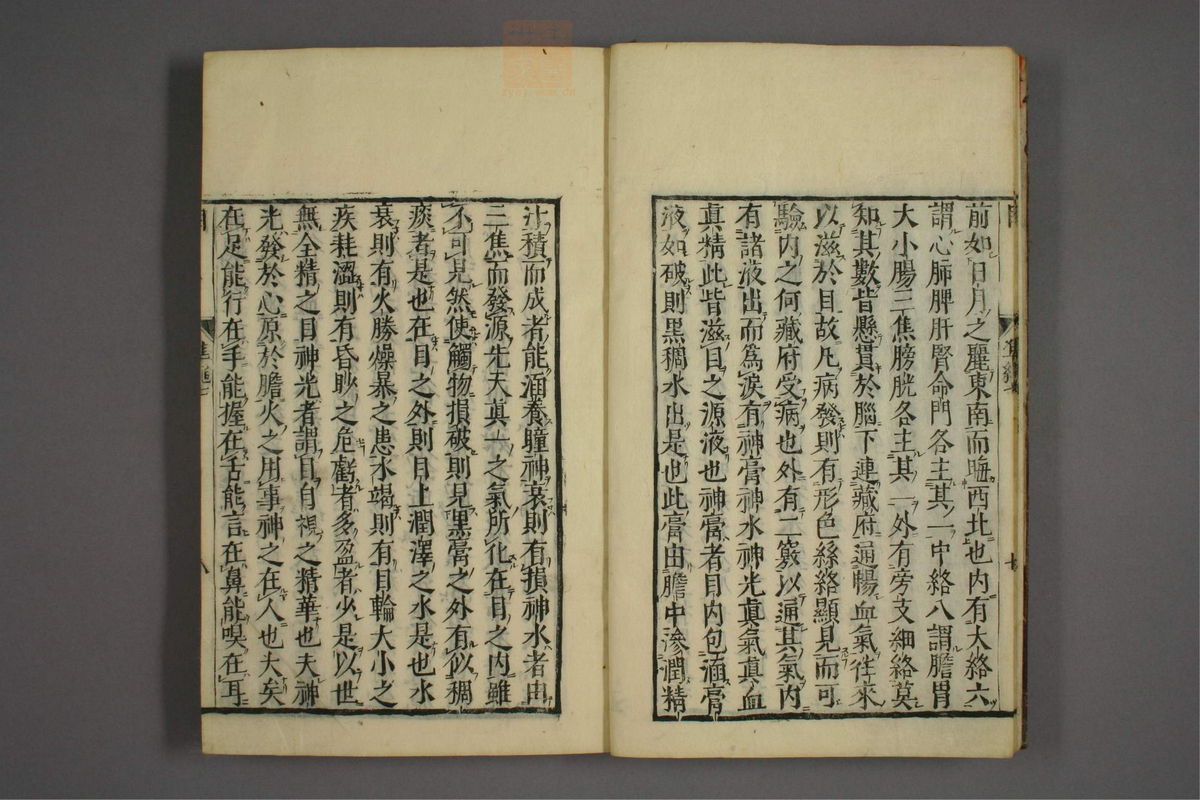 前如日月之麗東南而晦西北也內有大絡六
謂心肺脾肝腎命門各主其一中絡八謂膽胃
大小腸三焦膀胱各主其一外有旁支細絡莫
知其數皆懸貫於腦下連藏府通暢血氣往來
以滋於目故凡病發則有形色絲絡顯見而可
驗內之何藏府受病也外有二竅以通其氣內
有諸液出而爲淚有神膏神水神光眞氣眞血
眞精此皆滋目之源液也神膏者目內包涵膏
液如破則黑稠水出是也此膏由膽中滲潤精
汁積而成者能涵養瞳神衰則有損神水者由
三焦而發源先天眞一之氣所化在目之內雖
不可見然使觸物損破則見黑膏之外有似稠
痰者是也在目之外則目上潤澤之水是也水
衰則有火勝燥暴之患水竭則有目輪大小之
疾耗澀則有昏眇之危虧者多盈者少是以世
無全精之目神光者謂目自視之精華也夫神
光發於心原於膽火之用事神之在人也大矣
在足能行在手能握在舌能言在鼻能嗅在耳